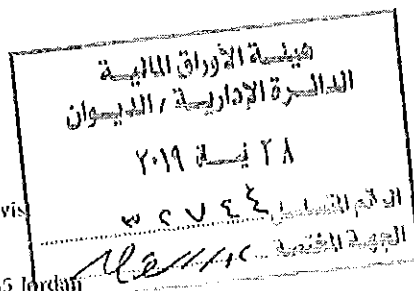 هيئة الأوراق المالية
الدائرة الإدارية / الديوان
٢٨ نيسان ٢٠١٩
الرقم المتسلسل ٣٢٧٤٤
الجهة المختصة
Jordan